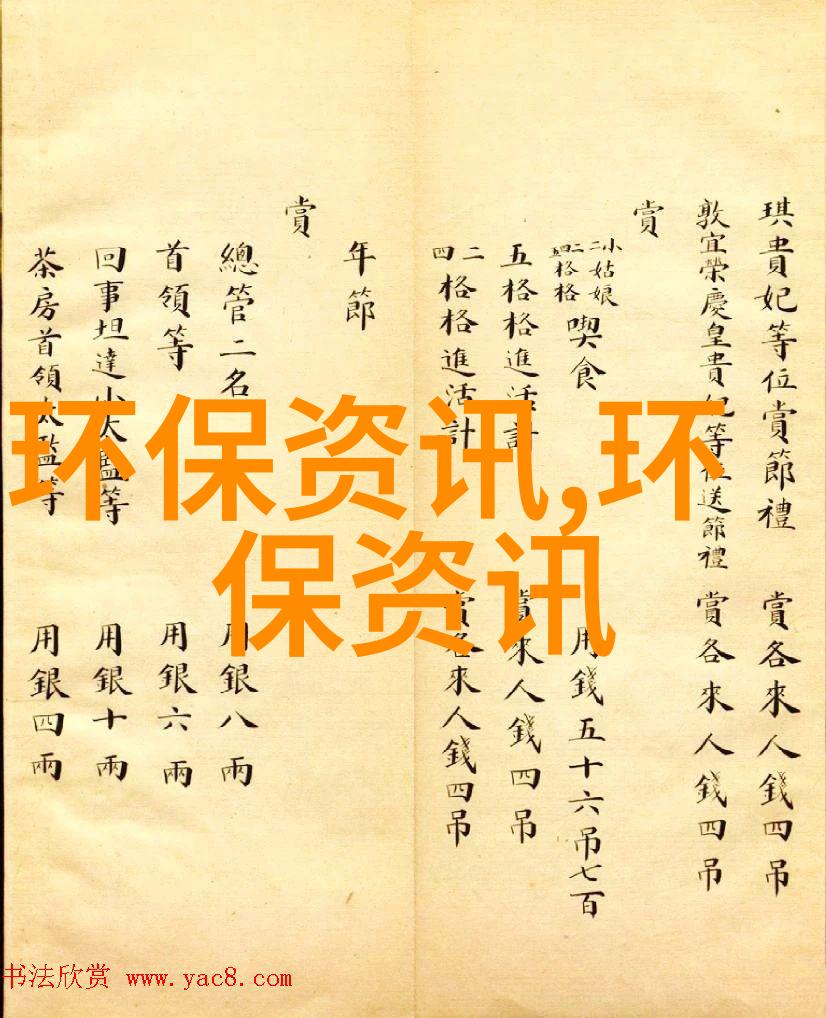 琪貴妃等位賞節禮 賞各來人錢四吊
敦宜榮慶皇貴妃等位送節禮 賞各來人錢四吊
賞
小二姑娘
二四五格格
喫食 用錢五十六吊七百
五格格進活計 賞來人錢四吊
二四格格進活計 賞各來人錢四吊
年節
賞
總管二名 用銀八兩
首領等 用銀六兩
回事坦達小太監等 用銀十兩
茶房首領太監等 用銀四兩
环保资讯,环
保资讯
书法欣赏 www.yac8.com